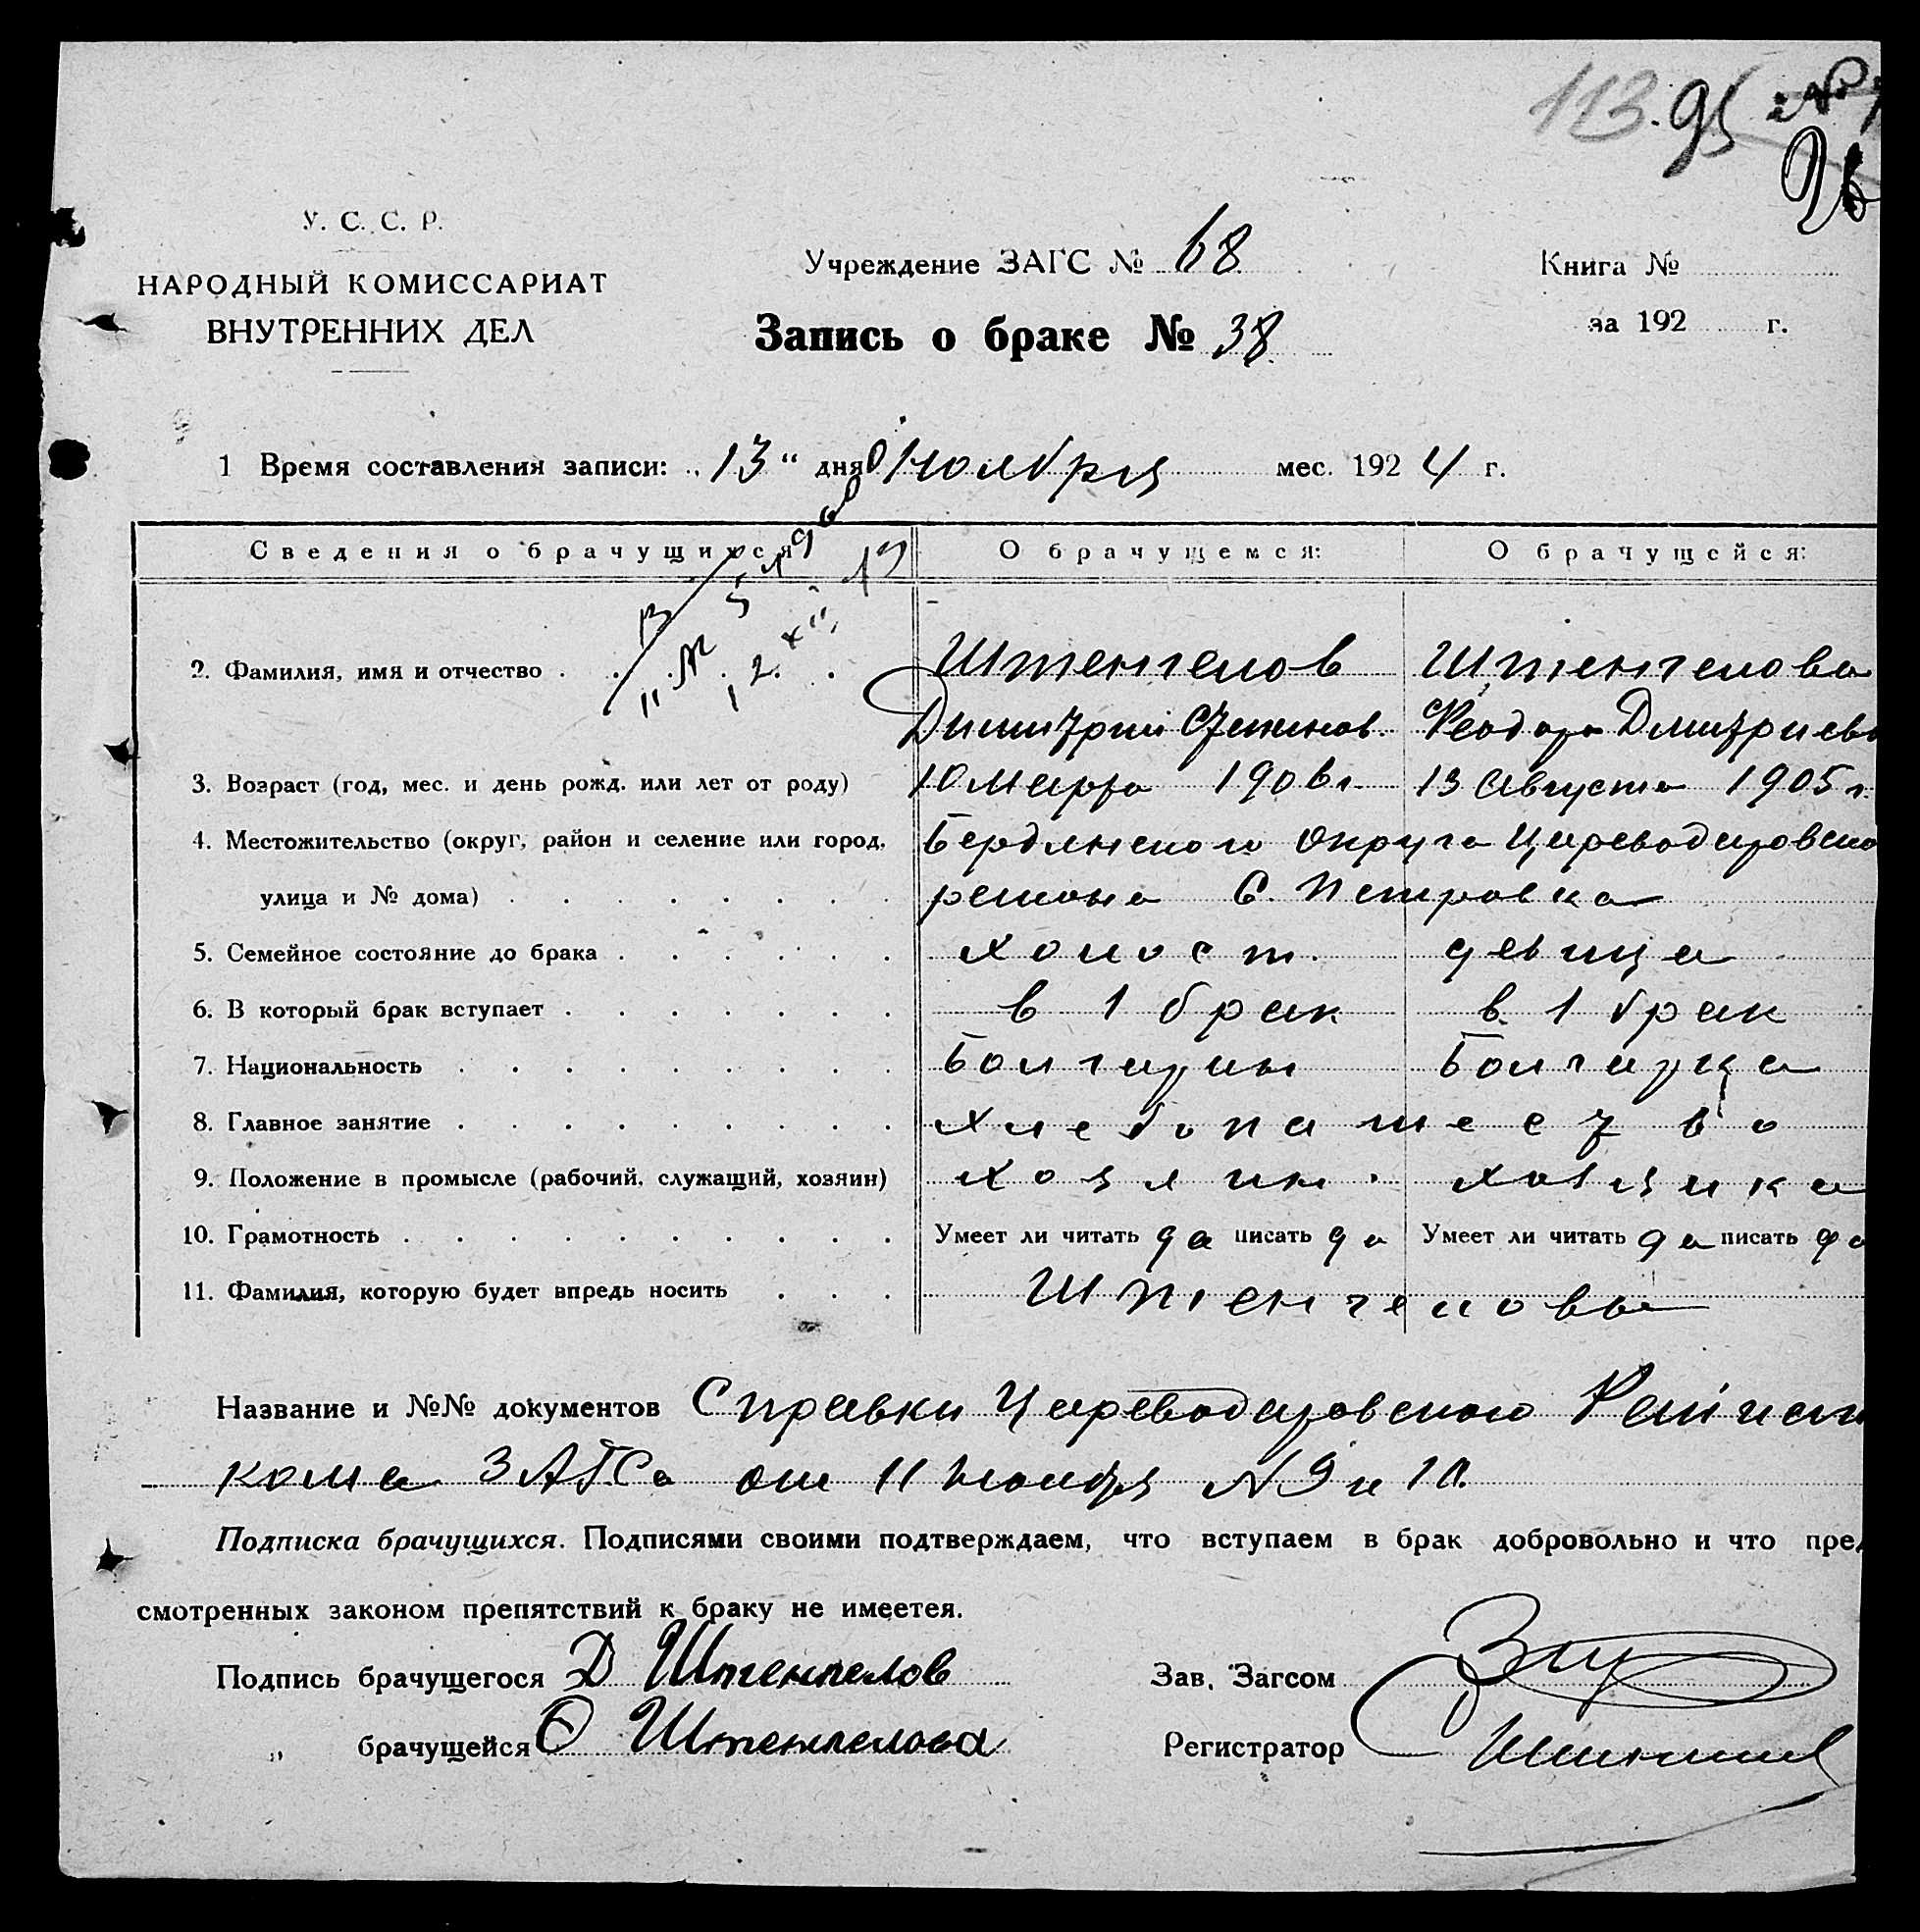 113. 95
У. С. С. Р.
НАРОДНЫЙ КОМИССАРИАТ
ВНУТРЕННИХ ДЕЛ
Учреждение ЗАГС № 68
Запись о браке № 38
Книга №
за 192 г.
1 Время составления записи: „13“ дня Ноября мес. 1924 г.
Сведения о брачущихся О брачущемся: О брачущейся:
2. Фамилия, имя и отчество Штенгелов Штенгелова
Димитрий Степанов. Феодора Дмитриевн
3. Возраст (год, мес. и день рожд. или лет от роду) 10 марта 1906 г. 13 Августа 1905 г.
4. Местожительство (округ, район и селение или город, Бердянского округа Цареводаровско
улица и № дома) района С. Петровка
5. Семейное состояние до брака холост. девица
6. В который брак вступает в 1 брак в 1 брак
7. Национальность Болгарин Болгарка
8. Главное занятие Хлебопашество
9. Положение в промысле (рабочий, служащий, хозяин) хозяин. хозяика
10. Грамотность Умеет ли читать да писать да Умеет ли читать да писать да
11. Фамилия, которую будет впредь носить Штенгеловы
Название и №№ документов Справки Цареводаровского Райисп
кома ЗАГСа от 11 Ноября N 9 и 10.
Подписка брачущихся. Подписями своими подтверждаем, что вступаем в брак добровольно и что пред
смотренных законом препятствий к браку не имеется.
Подпись брачущегося Д Штенгелов Зав. Загсом
„ брачущейся Ѳ Штенгелова Регистратор